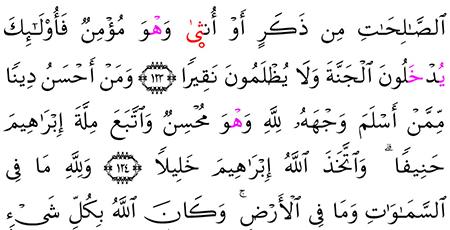 اَ۬لصَّٰلِحَٰتِ مِن ذَكَرٍ أَوۡ أُنث۪ىٰ وَهۡوَ مُؤۡمِنٞ فَأُوْلَٰٓئِكَ
يُدۡخَلُونَ اَ۬لۡجَنَّةَ وَلَا يُظۡلَمُونَ نَقِيرٗا ١٢٣ وَمَنۡ أَحۡسَنُ دِينٗا
مِّمَّنۡ أَسۡلَمَ وَجۡهَهُۥ لِلَّهِ وَهۡوَ مُحۡسِنٞ وَٱتَّبَعَ مِلَّةَ إِبۡرَٰهِيمَ
حَنِيفٗاۗ وَٱتَّخَذَ ٱللَّهُ إِبۡرَٰهِيمَ خَلِيلٗا ١٢٤ وَلِلَّهِ مَا فِي
ٱلسَّمَٰوَٰتِ وَمَا فِي ٱلۡأَرۡضِۚ وَكَانَ ٱللَّهُ بِكُلِّ شَيۡءٖ